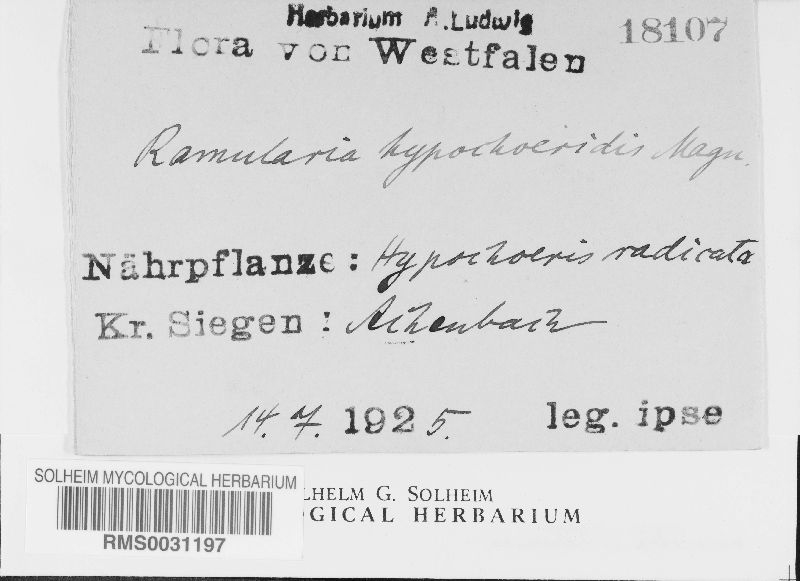 Herbarium A. Ludwig
18107
Flora von Westfalen
Ramularia hypochoeridis Magn.
Nährpflanze: Hypochoeris radicata
Kr. Siegen: Achenbach
14. 7. 1925. leg. ipse
SOLHEIM MYCOLOGICAL HERBARIUM
RMS0031197
LHELM G. SOLHEIM
OGICAL HERBARIUM